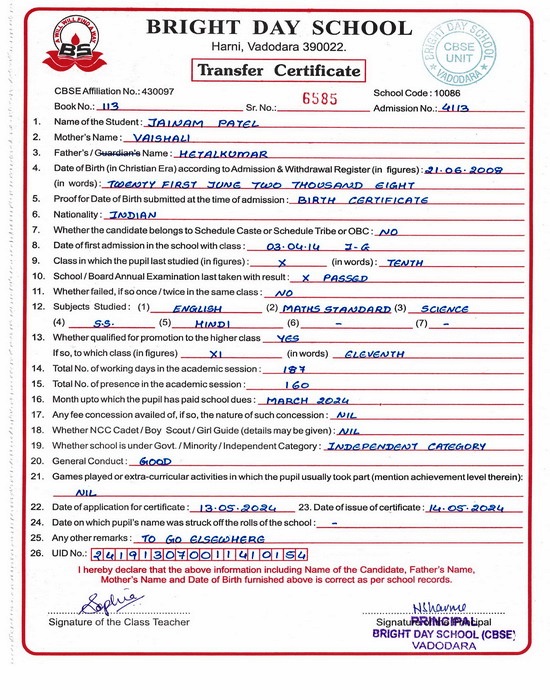 A WILL WILL FIND A WAY
BS
BRIGHT DAY SCHOOL
Harni, Vadodara 390022.
Transfer Certificate
BRIGHT DAY SCHOOL
CBSE
UNIT
VADODARA
CBSE Affiliation No.: 430097 School Code : 10086
Book No.: 113 Sr. No.: 6585 Admission No.: 4113
1. Name of the Student : JAINAM PATEL
2. Mother's Name : VAISHALI
3. Father's / Guardian's Name : HETALKUMAR
4. Date of Birth (in Christian Era) according to Admission & Withdrawal Register (in figures) : 21.06.2008
(in words) : TWENTY FIRST JUNE TWO THOUSAND EIGHT
5. Proof for Date of Birth submitted at the time of admission : BIRTH CERTIFICATE
6. Nationality : INDIAN
7. Whether the candidate belongs to Schedule Caste or Schedule Tribe or OBC : NO
8. Date of first admission in the school with class : 03.04.14 J-G
9. Class in which the pupil last studied (in figures) : X (in words) : TENTH
10. School / Board Annual Examination last taken with result : X PASSED
11. Whether failed, if so once / twice in the same class : NO
12. Subjects Studied : (1) ENGLISH (2) MATHS STANDARD (3) SCIENCE
(4) S.S. (5) HINDI (6) - (7) -
13. Whether qualified for promotion to the higher class YES
If so, to which class (in figures) XI (in words) ELEVENTH
14. Total No. of working days in the academic session : 187
15. Total No. of presence in the academic session : 160
16. Month upto which the pupil has paid school dues : MARCH 2024
17. Any fee concession availed of, if so, the nature of such concession : NIL
18. Whether NCC Cadet / Boy Scout / Girl Guide (details may be given) : NIL
19. Whether school is under Govt. / Minority / Independent Category : INDEPENDENT CATEGORY
20. General Conduct : GOOD
21. Games played or extra-curricular activities in which the pupil usually took part (mention achievement level therein):
NIL
22. Date of application for certificate : 13.05.2024 23. Date of issue of certificate : 14.05.2024
24. Date on which pupil's name was struck off the rolls of the school : -
25. Any other remarks : TO GO ELSEWHERE
26. UID No.: 241913070011410154
I hereby declare that the above information including Name of the Candidate, Father's Name,
Mother's Name and Date of Birth furnished above is correct as per school records.
Sophia
Signature of the Class Teacher Signature of the Principal
PRINCIPAL
BRIGHT DAY SCHOOL (CBSE)
VADODARA